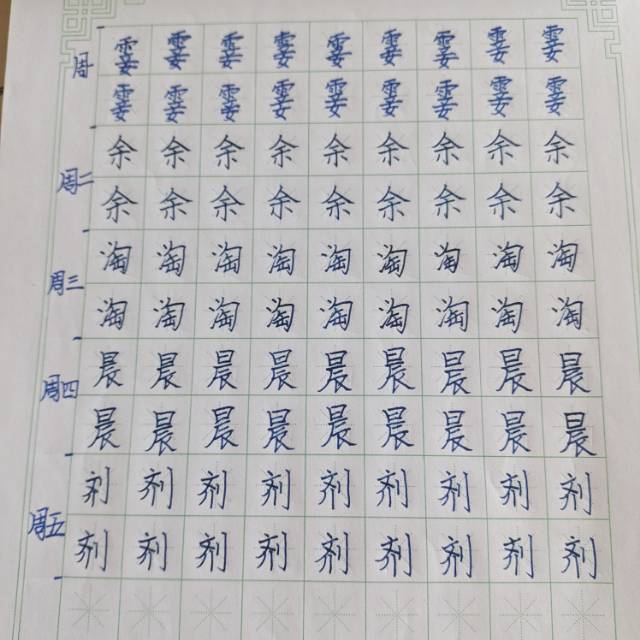 周
霎霎霎霎霎霎霎霎霎
霎霎霎霎霎霎霎霎霎
周二
余余余余余余余余余
余余余余余余余余余
周三
淘淘淘淘淘淘淘淘淘
淘淘淘淘淘淘淘淘淘
周四
晨晨晨晨晨晨晨晨晨
晨晨晨晨晨晨晨晨晨
周五
剂剂剂剂剂剂剂剂剂
剂剂剂剂剂剂剂剂剂